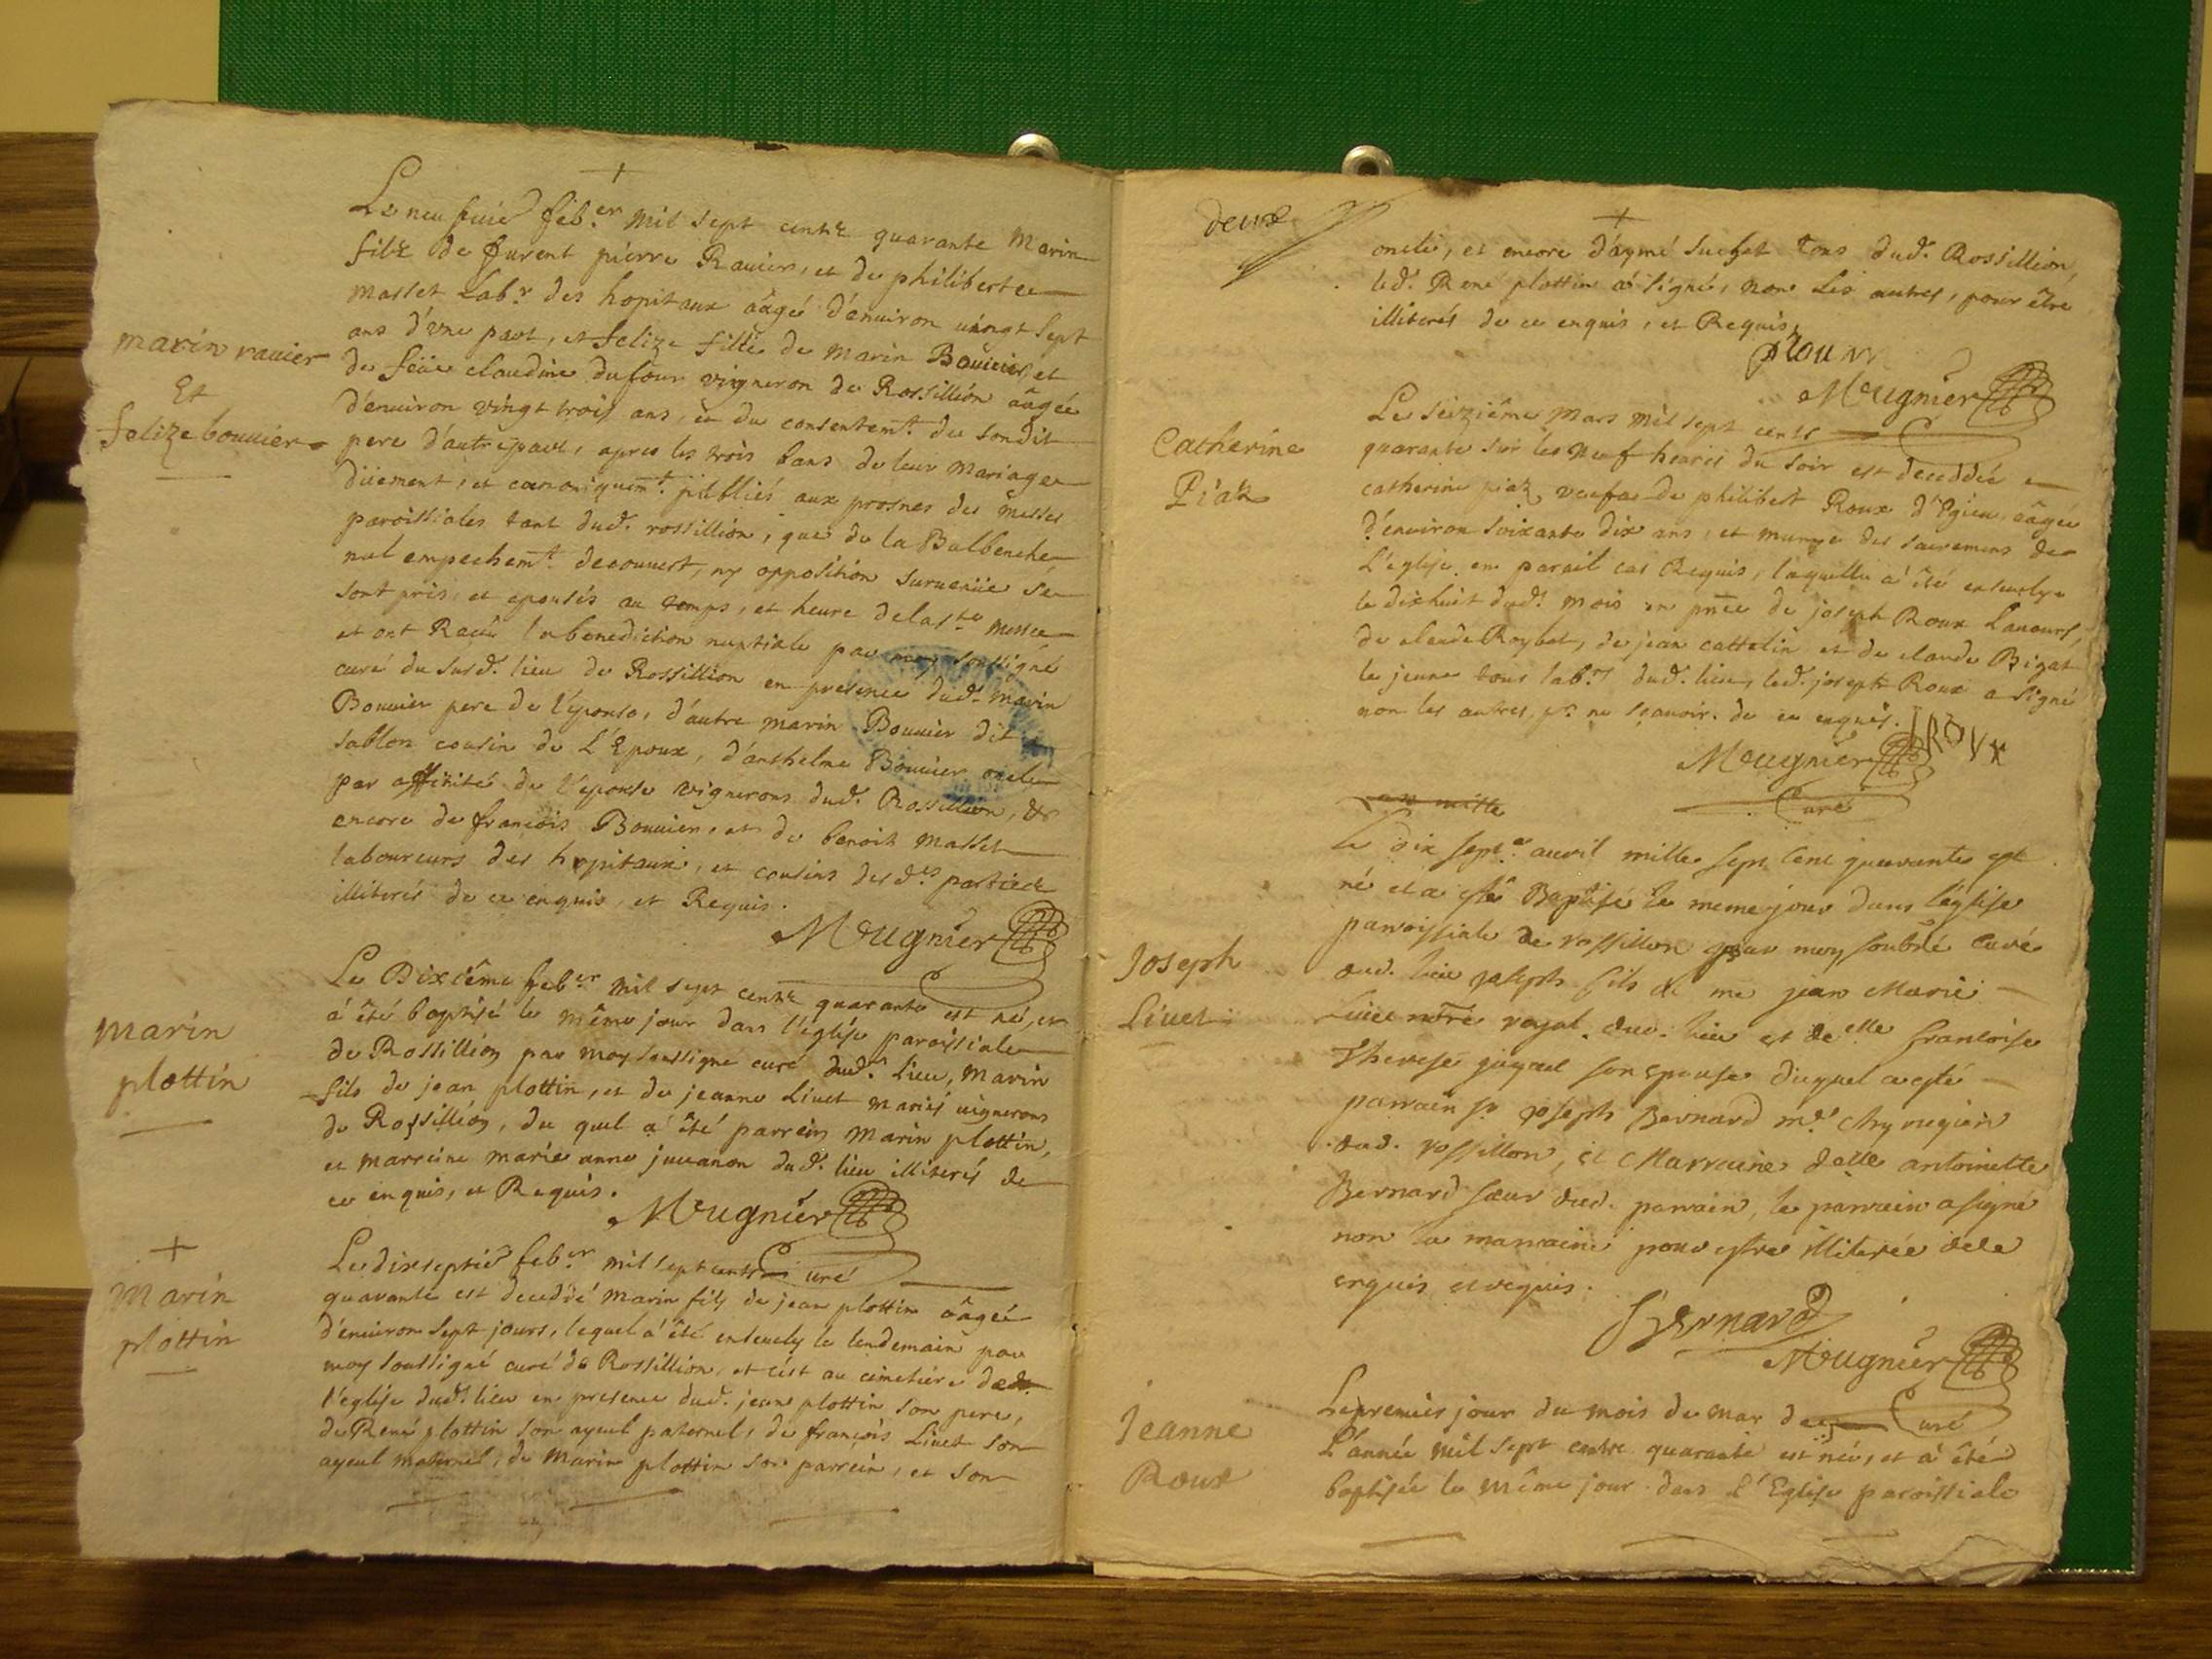 marin ravier
Et
felize bouvier
Le neufvie feber mil sept centz quarante Marin
filz de furent pierre Ravier, et de philiberte
masset labr des hopitaux âagé d'environ vingt sept
ans d'vne part, et felize fille de Marin Bouvier, et
de feüe claudine dufour vigneron de Rossillion âagée
d'environ vingt trois ans, et du consentemt de sondit
pere d'autre part, apres les trois bans de leur Mariage
düement, et canoniquemt publiés aux prosnes des messes
paroissiales tant dud. rossillion, que de la Balbenche
nul empechemt decouvert, ny opposition survenüe se
sont pris, et epousés au temps, et heure de la ste messe
et ont Racüe la benediction nuptiale par moy soussigné
curé du susd. lieu de Rossillion en presence dud. marin
Bouvier pere de l'épouse, d'autre marin Bouvier dit
sablon cousin de L'Epoux, d'anthelme Bouvier oncle
par affinité de l'épouse vignerons dud. Rossillion, &
encore de françois Bouvier, et de benoit masset
laboureurs des hopitaux, et cousins desd. parties
illiterés de ce enquis, et Requis.
Meugnier
marin
plottin
Le Dixiême feber mil sept centz quarante est né, et
á êté baptisé le même jour dans l'église paroissiale
de Rossillion par moy soussigne curé dud. Lieu, Marin
fils de jean plottin, et de jeanne Livet mariés vignerons
de Rossillion, du quel á êté parrein Marin plottin,
et marreine marie anne juvanon dud. lieu illiterés de
ce enquis, et Requis.
Meugnier
Curé
+
Marin
plottin
Le dixseptie feber mil sept centz
quarante est decedde marin fils de jean plottin âagée
d'environ sept jours, lequel á êté ensevely le lendemain par
moy soussigné curé de Rossillion, et c'est au cimetiere de
l'église dud. lieu en presence dud. jean plottin son pere,
de René plottin son ayeul paternel, de françois Livet son
ayeul maternel, de Marin plottin son parrein, et son
deux
+
oncle, et encore d'aymé suchet tous dud. Rossillion,
led. René plottin á signé, non Les autres, pour être
illiterés de ce enquis, et Requis.
Meugnier
Catherine
Piak
Le seiziême Mars mil sept centz
quarante sur les neuf heures du soir est deceddée
catherine piaz veufve de philibert Roux d'Egieu, âagée
d'environ soixante dix ans, et munye des sacremens de
L'église en pareil cas Requis, laquelle a êté ensevelye
le dixhuit dud. mois en pnce de joseph Roux
de claude Roybet, de jean cattelin et de claude Bigat
le jeune tous labrs dud. lieu, led. joseph Roux a signé
non les autres, pr ne scavoir. de ce enquis.
IROVX
Meugnier
Curé
Joseph
Livet
Le dix septe avril mille sept cent quarante est
né et a esté Baptisé le meme jour dans l'église
parroissiale de rossillon par moy soubné curé
dud. lieu joseph fils de me jean Marie
Livet nore royal dud. lieu et de delle francoise
Therese son epouse duquel a esté
parrain sr joseph Bernard me chyrurgien
dud. rossillon, et Marraine delle antoinette
Bernard sœur dud. parrain, le parrain a signé
non la marraine pour estre illiterée de ce
enquis et requis.
Bernard
Meugnier
Curé
Jeanne
Roux
Le premier jour du mois de may de
L'année mil sept centz quarante est née, et á êtée
baptisée le même jour dans l'Eglise paroissiale